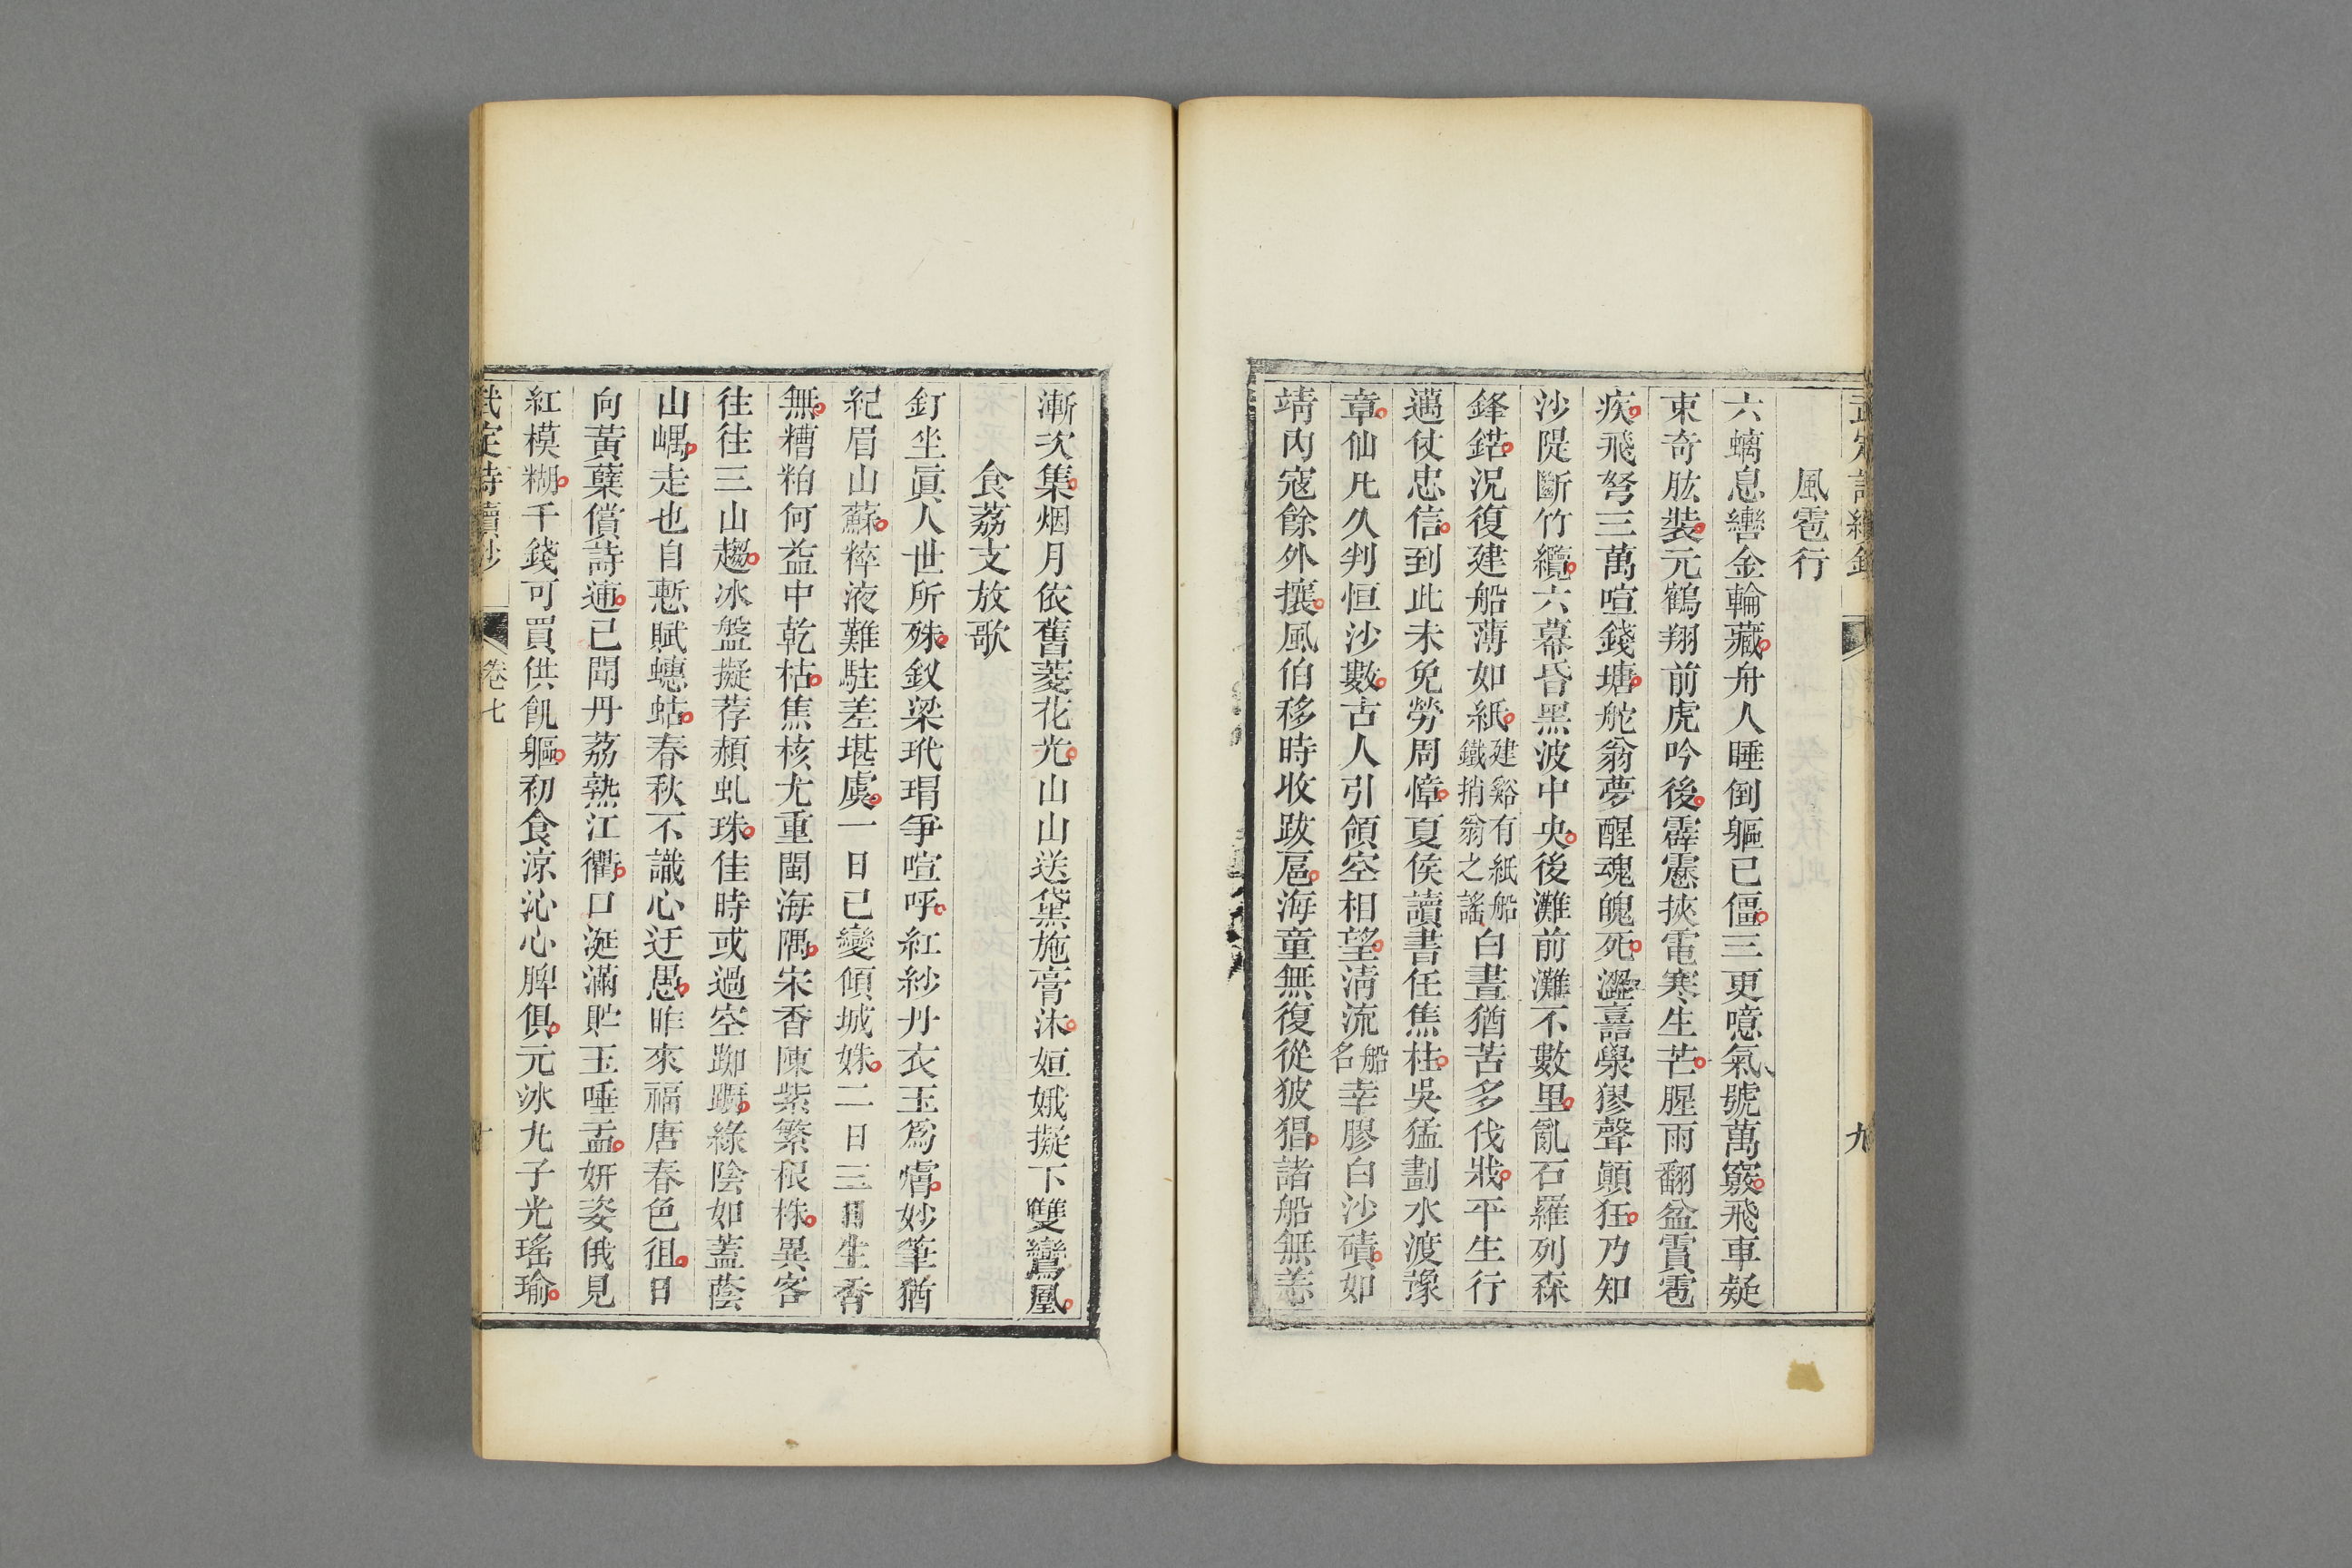 風雹行
六螭息轡金輪藏舟人睡倒軀已僵三更噫氣號萬竅飛車疑
東奇肱裝元鶴翔前虎吟後霹靂挾電寒生芒腥雨翻盆霣雹
疾飛弩三萬喧錢塘舵翁夢醒魂魄死澀譶㶅㺒聲顚狂乃知
沙隄斷竹纜六幕昏黑波中央後灘前灘不數里亂石羅列森
鋒鍩況復建船薄如紙建谿有紙船鐵捎翁之謠白晝猶苦多伐戕平生行
邁仗忠信到此未免勞周慞夏侯讀書任焦柱吳猛劃水渡豫
章仙凡久判恒沙數古人引領空相望淸流船名幸膠白沙磧如
靖內寇餘外攘風伯移時收跋扈海童無復從㹢猖諸船無恙
漸次集烟月依舊菱花光山山送黛施膏沐姮娥擬下雙鸞凰
食荔支放歌
釘坐眞人世所殊釵梁玳瑁爭喧呼紅紗丹衣玉爲膚妙筆猶
紀眉山蘇稡液難駐差堪虞一日已變傾城姝二日三日生香
無糟粕何益中乾枯焦核尤重閩海隅宋香陳紫繁根株異客
往往三山趨冰盤擬荐頳虬珠佳時或過空踟躕綠陰如蓋蔭
山嵎走也自慙賦蟪蛄春秋不識心迂愚昨來福唐春色徂日
向黃蘗償詩逋已聞丹荔熟江衢口涎滿貯玉唾盂姸姿俄見
紅模糊千錢可買供飢軀初食涼沁心脾俱元冰九子光瑤瑜
卷七
九